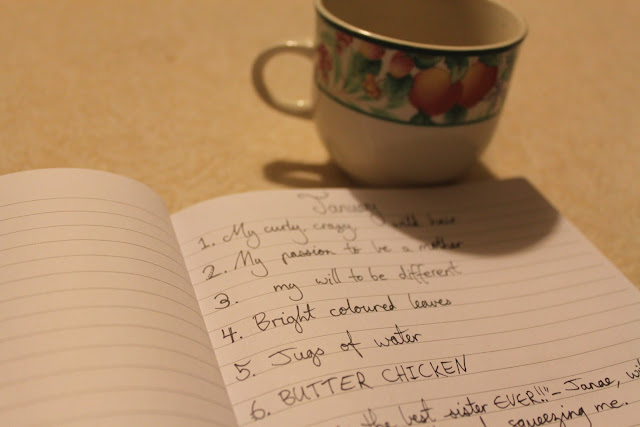 January
1. My curly, crazy, wild hair
2. My passion to be a mother
3. my will to be different
4. Bright coloured leaves
5. Jugs of water
6. BUTTER CHICKEN
the best sister EVER!!"- Janae,
squeezing me.